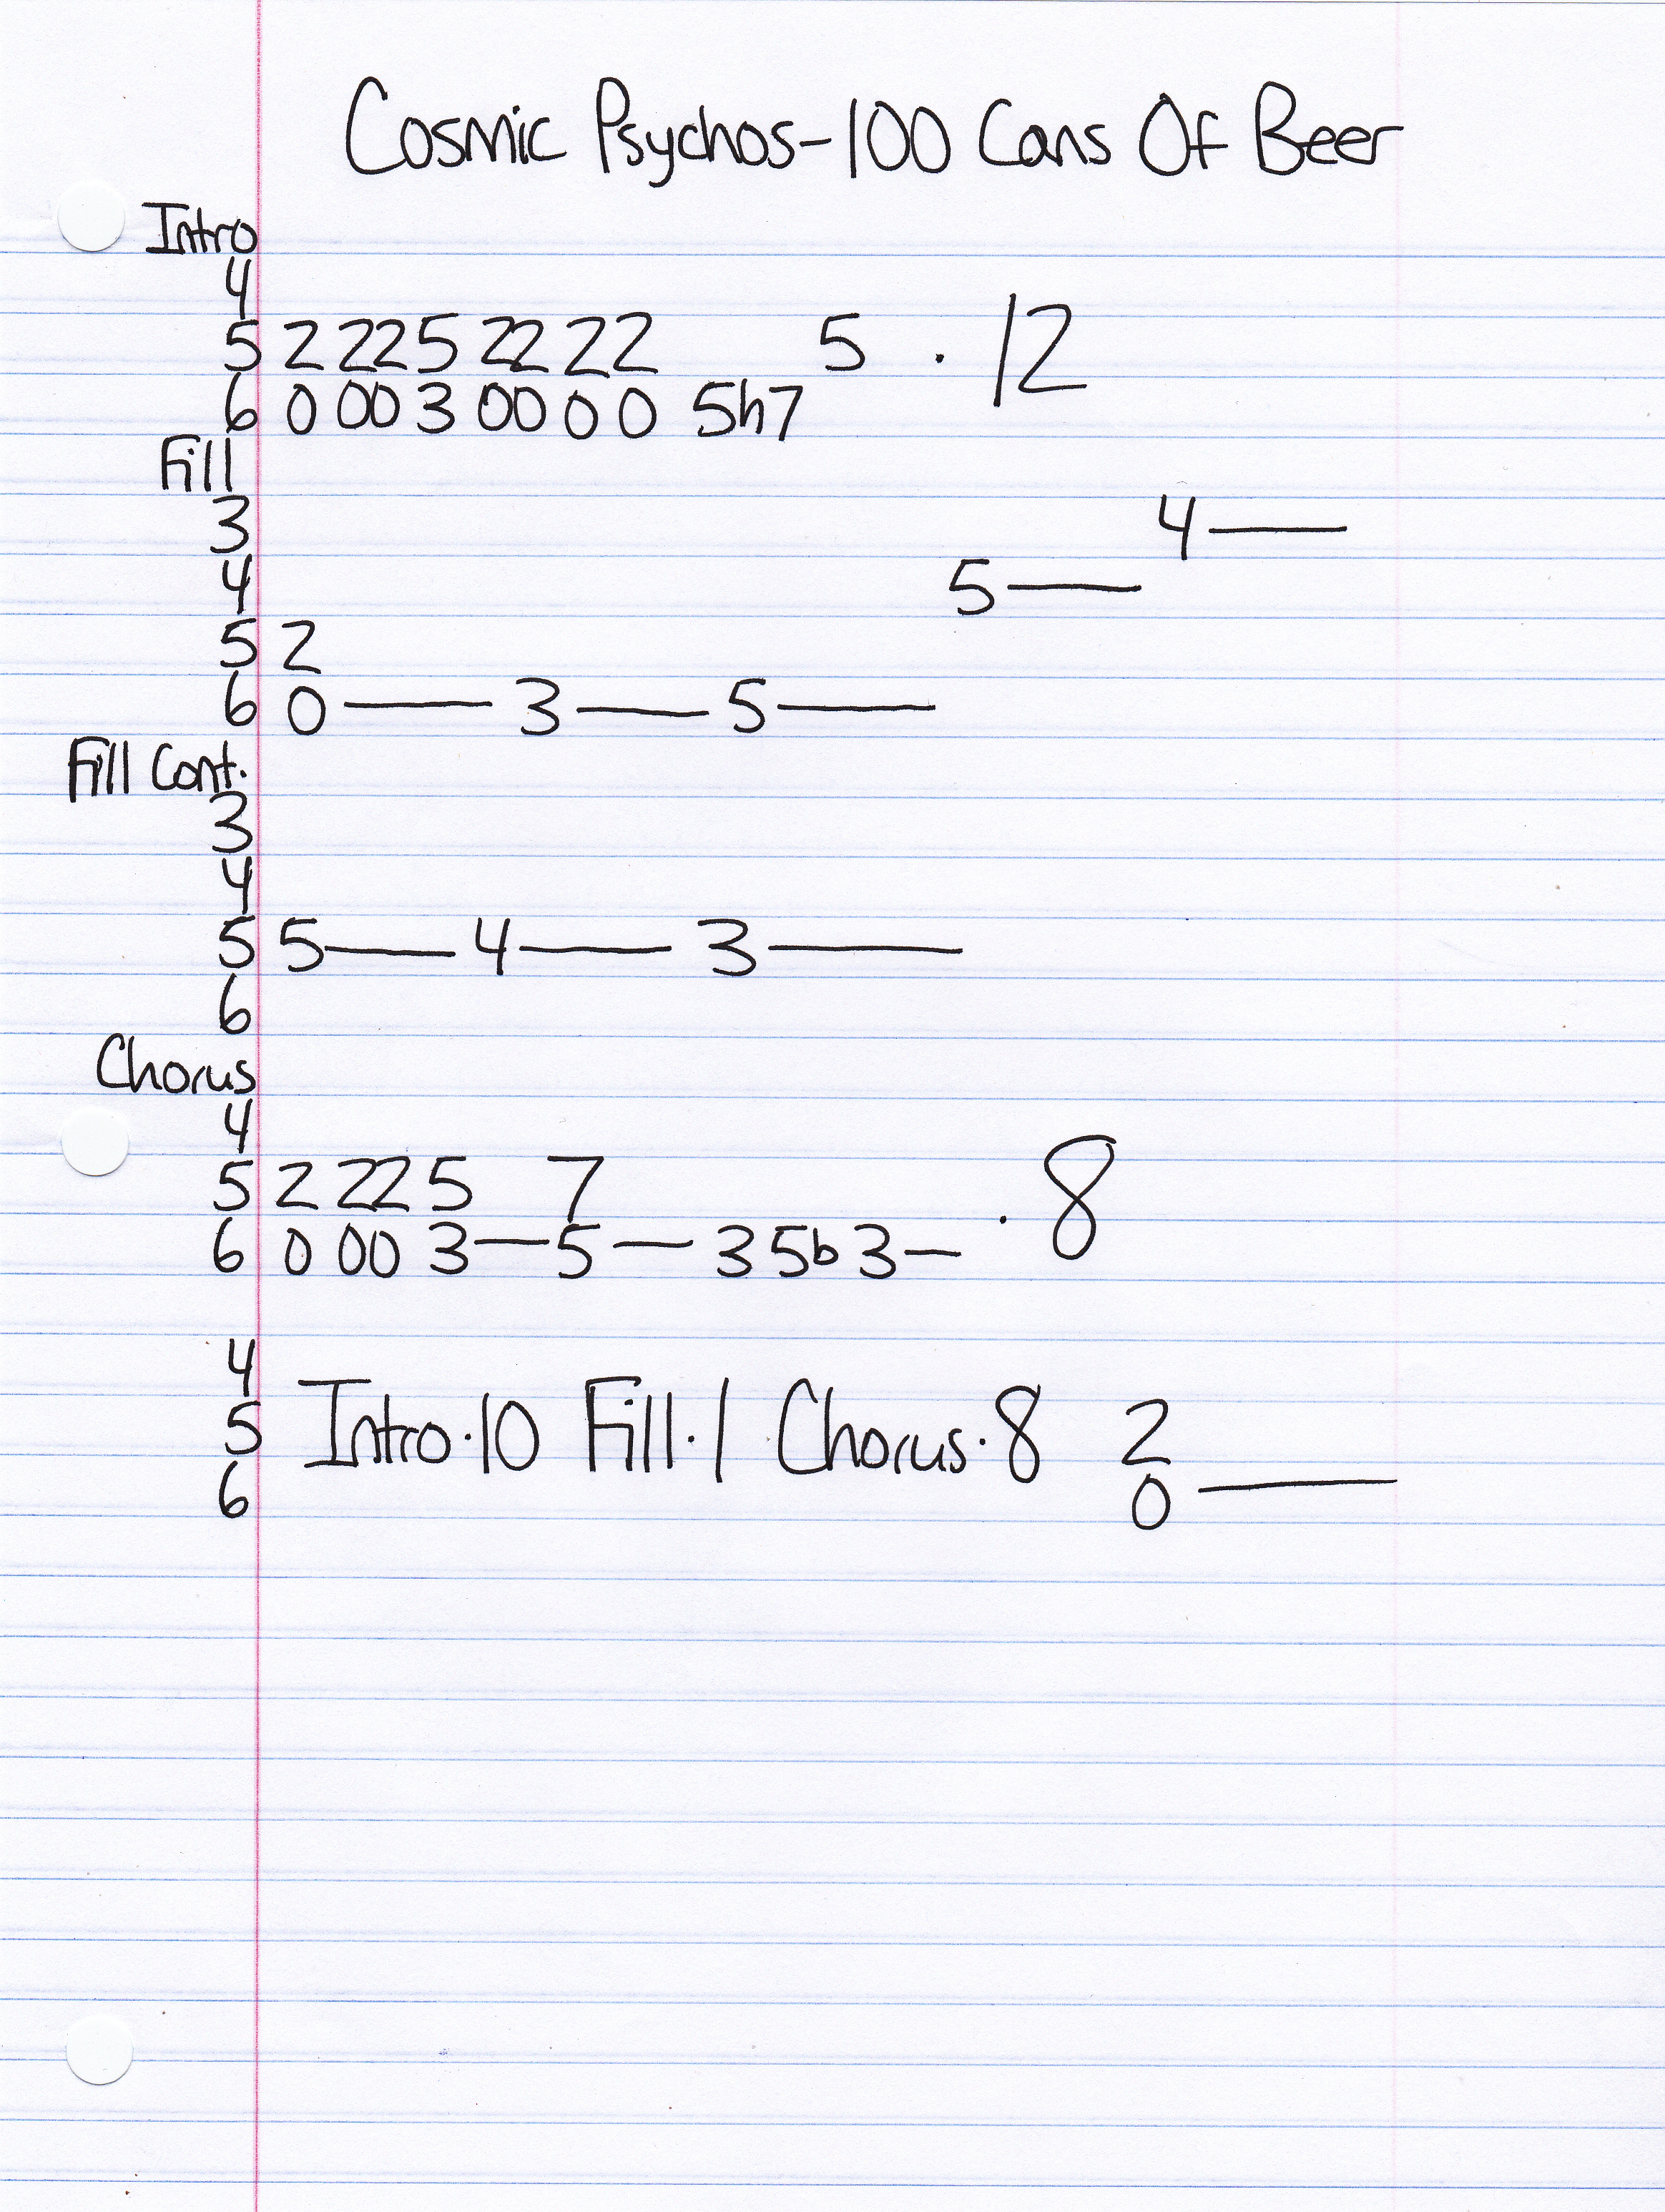 Cosmic Psychos-100 Cans Of Beer
Intro
4
5 2 22 5 22 2 2 5 · 12
6 0 00 3 00 0 0 5h7
Fill
3 4—
4 5—
5 2
6 0 — 3 — 5 —
Fill Cont.
3
4
5 5— 4— 3—
6
Chorus
4
5 2 22 5 7 · 8
6 0 00 3—5 — 3 5b 3 —
4
5 Intro·10 Fill·1 Chorus·8 2
6 0 —